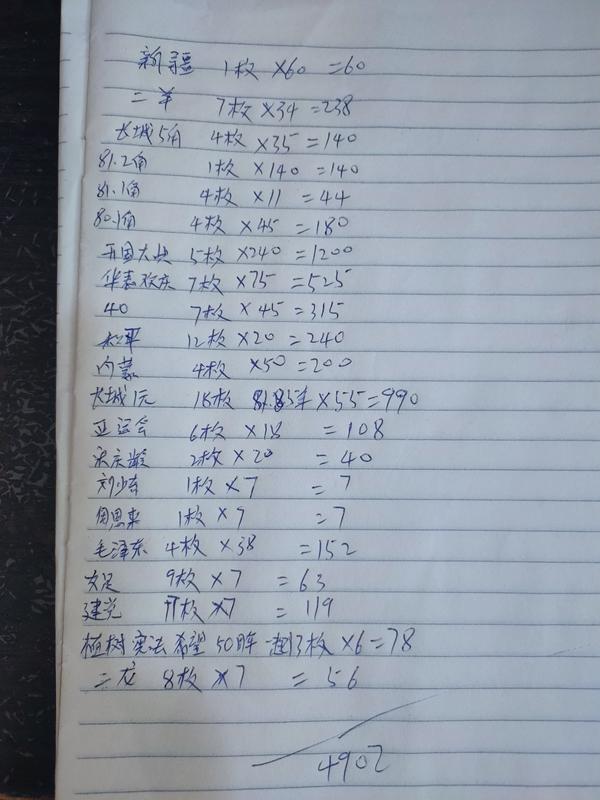 新疆 1枚 ×60 =60
二羊 7枚 ×34 =238
长城5角 4枚 ×35 =140
81.2角 1枚 ×140 =140
81.1角 4枚 ×11 =44
80.1角 4枚 ×45 =180
开国大典 5枚 ×240 =1200
华喜欢庆 7枚 ×75 =525
40 7枚 ×45 =315
和平 12枚 ×20 =240
内蒙 4枚 ×50 =200
长城1元 18枚 81.85年 ×55=990
亚运会 6枚 ×18 =108
宋庆龄 2枚 ×20 =40
刘少奇 1枚 ×7 =7
周恩来 1枚 ×9 =7
毛泽东 4枚 ×38 =152
女足 9枚 ×7 =63
建党 17枚 ×7 = 119
植树 宪法 希望 50年 一起13枚 ×6=78
二龙 8枚 ×7 = 56
4902